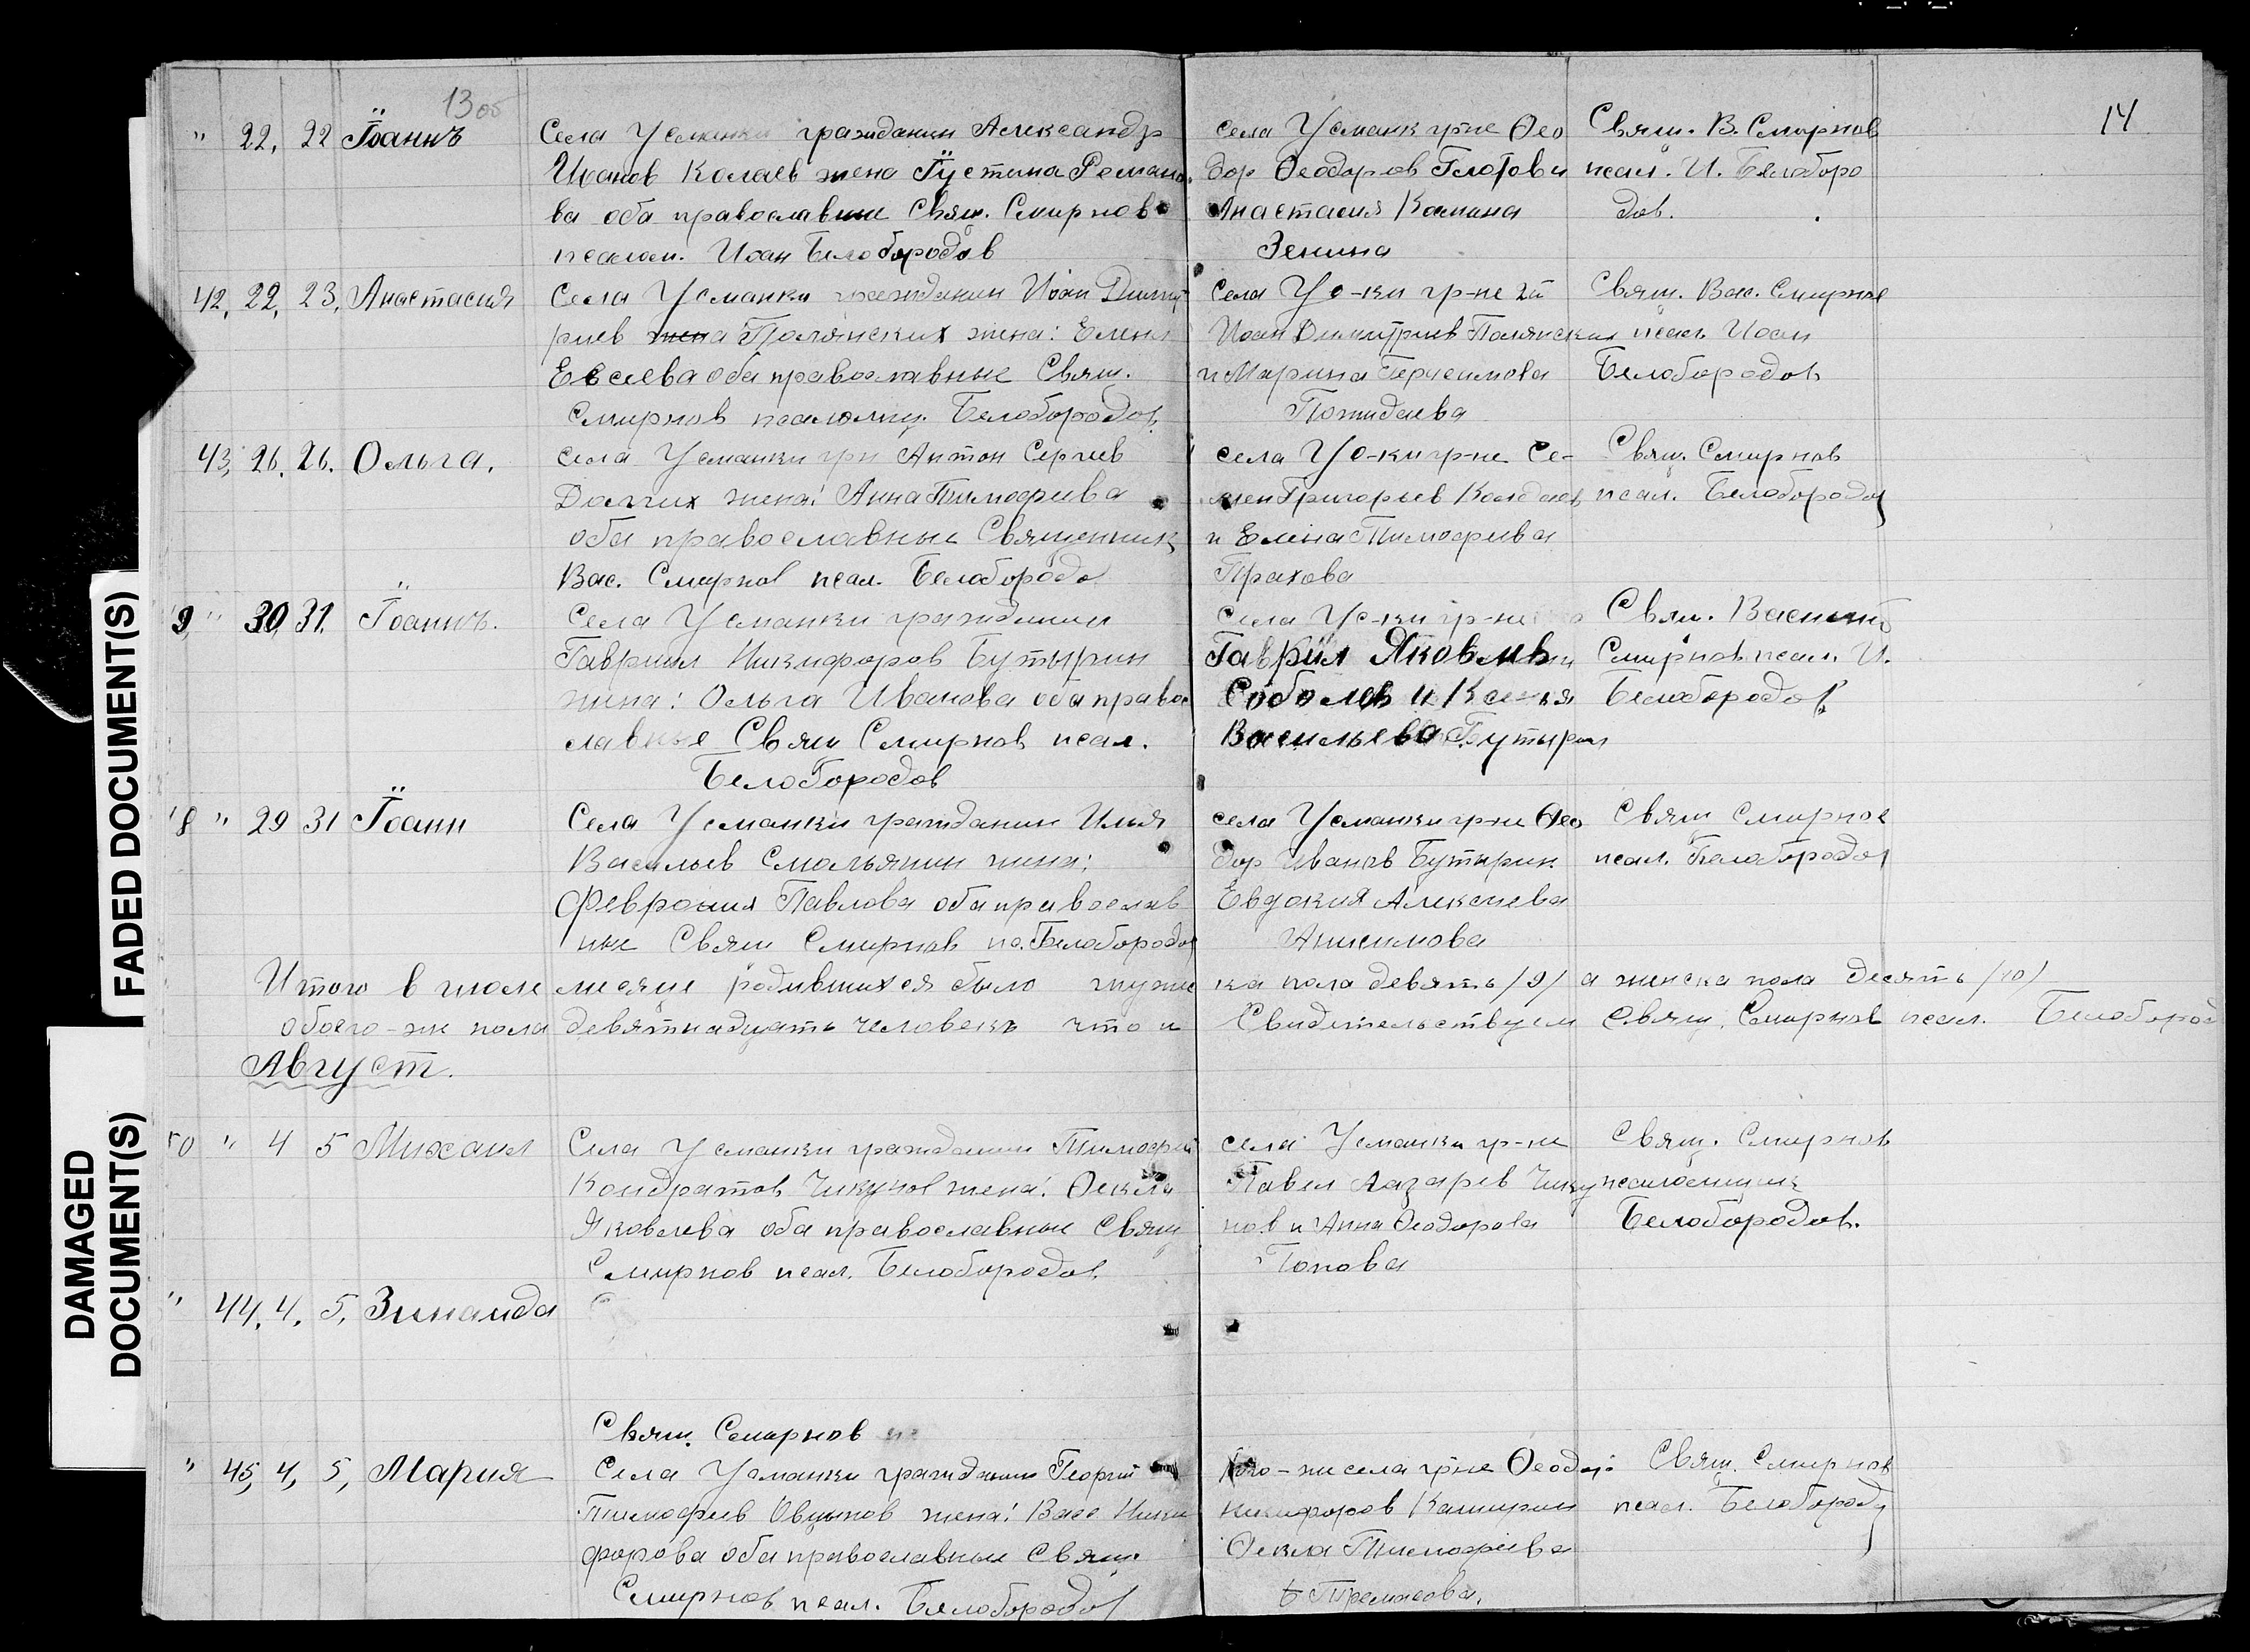 13 об
14
" 22, 22 Їоаннъ Села Усманки гражданин Александр
Иванов Колаев жена Їустина Романо
ва оба православные Свящ. Смирнов
псалом. Иоан Белобородов
села Усманк гр-не Ѳео
дор Ѳеодоров Глотов и
Анастасия
Зенина
Свящ. В. Смирнов
псал. И. Белоборо
дов.
42, 22, 23, Анастасия Села Усманки гражданин Иоан Димит
риев жена Полянских жена: Елена
Евсеева оба православные Свящ.
Смирнов псаломщ. Белобородов
Села Ус-ки гр-не
Иоан Димитриев Полянских
и Марина Герасимова
Потидаева
Свящ. Вас. Смирнов
псал. Иоан
Белобородов
43, 26, 26. Ольга, села Усманки грн Антон Сергиев
Долгих жена: Анна Тимофеева
оба православные Священник
Вас. Смирнов псал. Белобородо
села Ус-ки гр-не Се-
мен Григорьев
и Елена Тимофеева
Прахова
Свящ. Смирнов
псал. Белобородов
9 " 30, 31. Їоаннъ. Села Усманки гражданин
Гавриил Никифоров Бутырин
жена: Ольга Иванова оба право
славные Свящ Смирнов псал.
Белобородов
Села Ус-ки гр-не
Гаврїил Яковлев
Соболев и
Васильева Бутырин
Свящ. Василий
Смирнов псал. И.
Белобородов
8 " 29 31 Їоанн Села Усманки гражданин Илья
Васильев Смольянин жена:
Феврония Павлова оба православ
ные Свящ Смирнов пс. Белобородов
села Усманки гр-не Ѳео
дор Иванов Бутырин
Евдокия Алексиева
Анисимова
Свящ Смирнов
псал. Белобородов
Итого в июле месяце родившихся было мужес ка пола девять /9/ а женска пола десять /10/
обоего-же пола девятнадцать человекъ что и Свидетельствуем Свящ. Смирнов псал. Белобород
Август.
50 " 4 5 Михаил Села Усманки гражданин Тимофей
Кондратов Чикунов жена: Ѳекла
Яковлева оба православные Свящ
Смирнов псал. Белобородов
села Усманки гр-не
Павел Лазарев Чику
нов и Анна Ѳеодорова
Попова
Свящ. Смирнов
псаломщик
Белобородов.
" 44, 4, 5, Зинаида
Свящ. Смирнов
" 45, 4, 5, Мария Села Усманки гражданин Георгий
Тимофеев Овцынов жена: Васс Ники
форова оба православные Свящ.
Смирнов псал. Белобородов
того-же села гр-не Ѳеодор
Никифоров Каширин
Ѳекла Тимофеева
Свящ. Смирнов
псал. Белобород
FADED DOCUMENT(S)
DAMAGED
DOCUMENT(S)